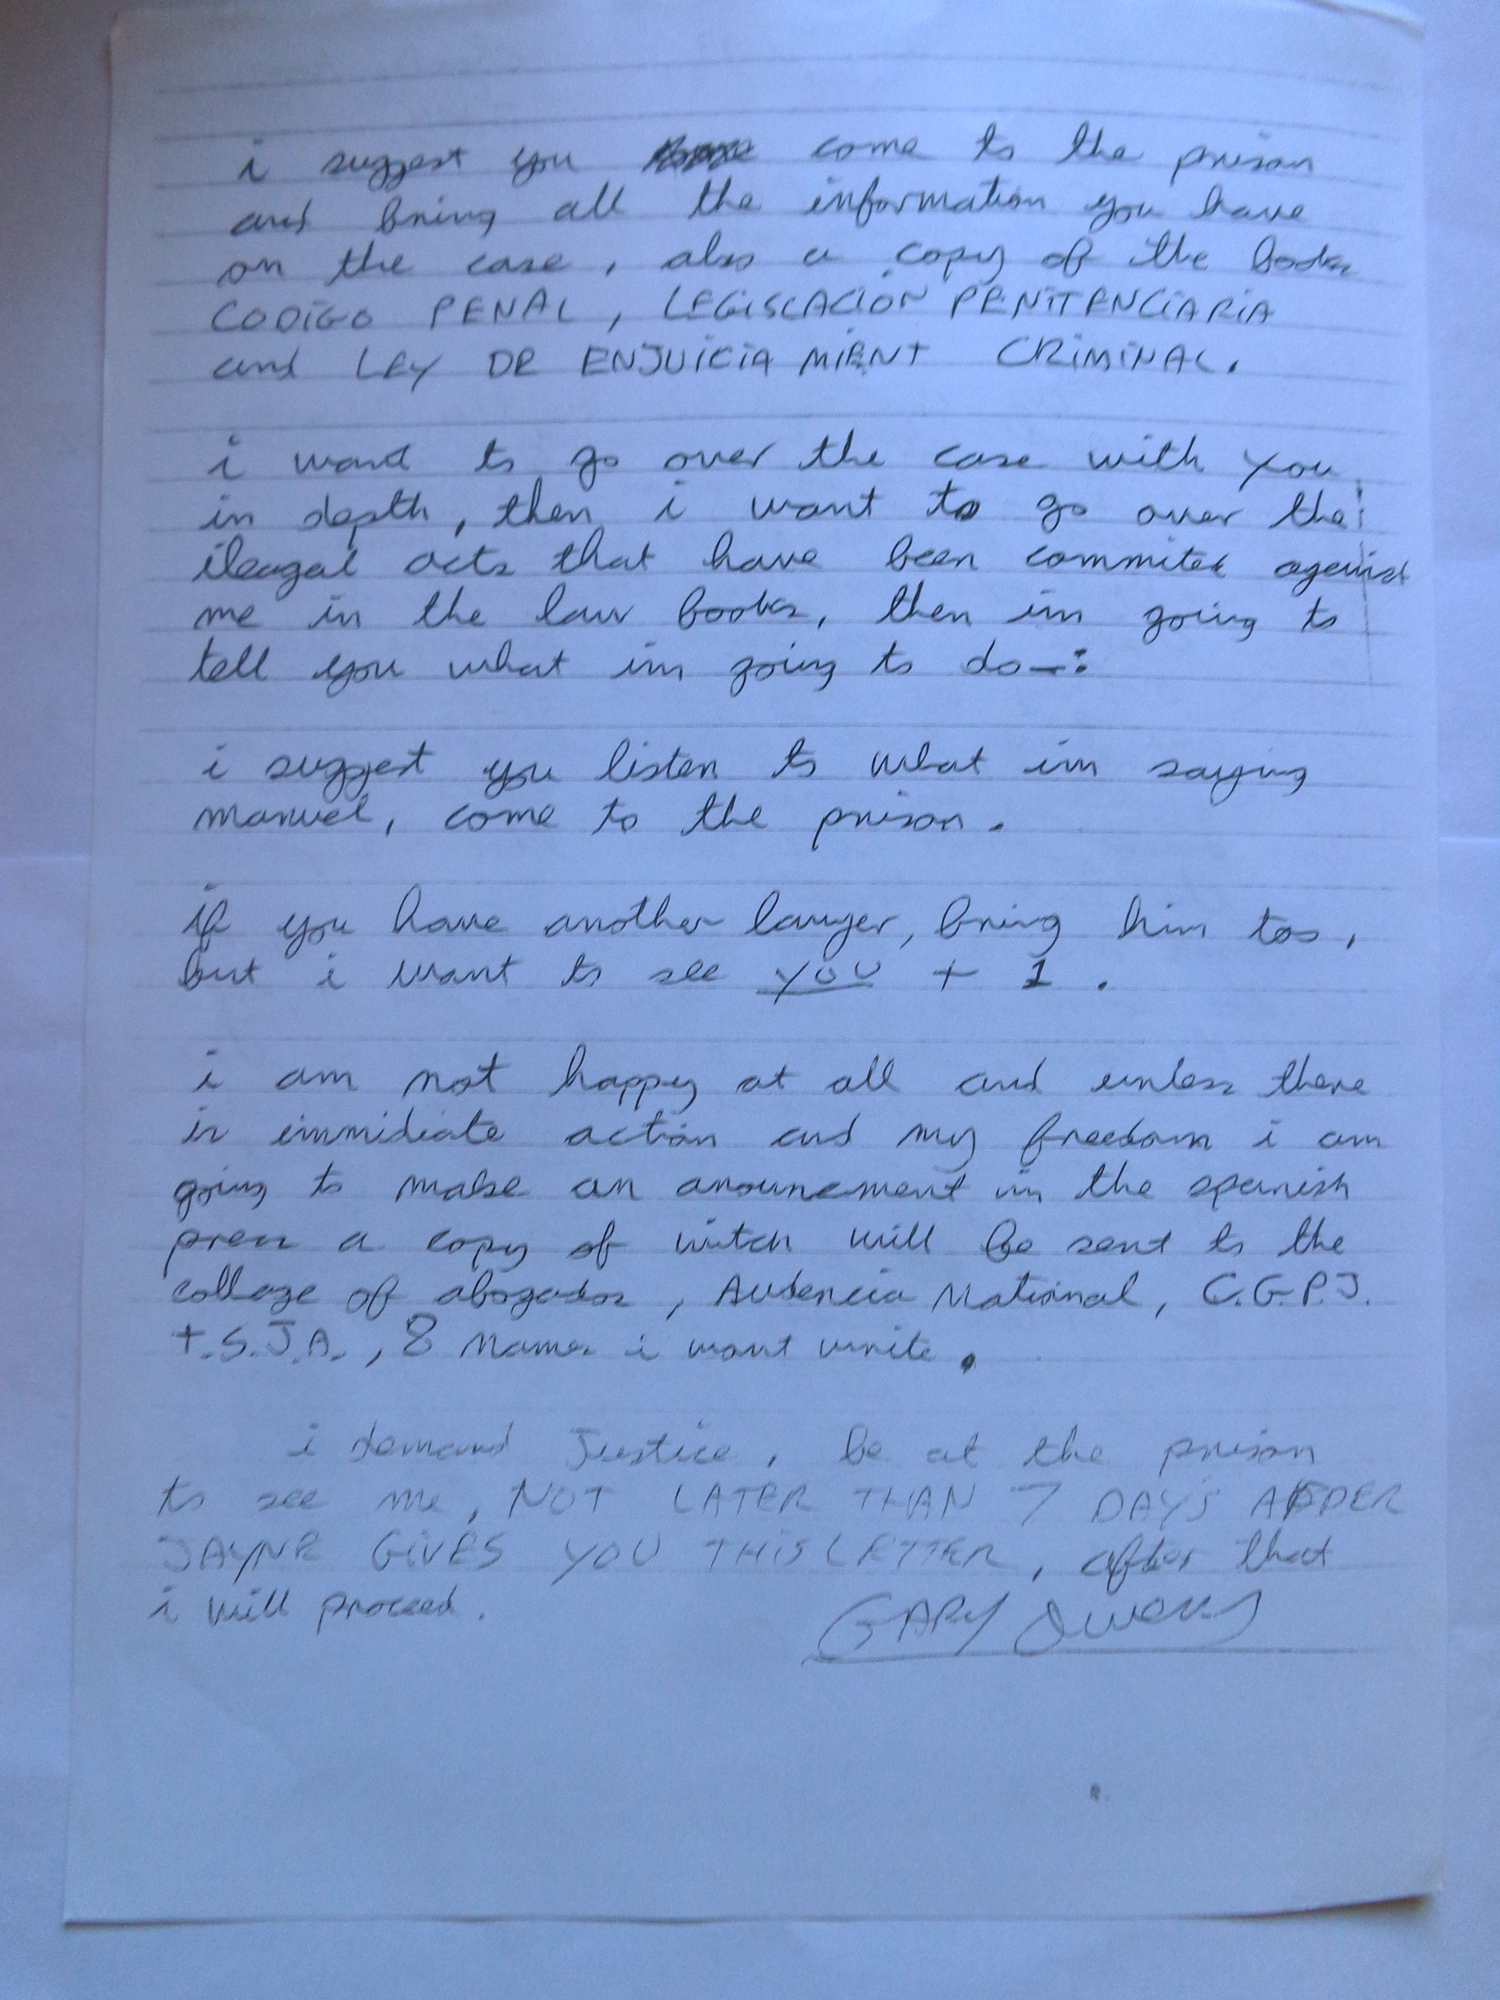 i suggest you come to the prison
and bring all the information you have
on the case, also a copy of the books
CODIGO PENAL, LEGISLACION PENITENCIARIA
and LEY DE ENJUICIAMIENT CRIMINAL.
i want to go over the case with you
in depth, then i want to go over the
ileagal acts that have been commited against
me in the law books, then im going to
tell you what im going to do—:
i suggest you listen to what im saying
manuel, come to the prison.
if you have another lawyer, bring him too,
but i want to see YOU + 1.
i am not happy at all and unless there
is immidiate action and my freedom i am
going to make an anouncement in the spanish
press a copy of witch will be sent to the
collage of abogados, Audencia National, C.G.P.J.
T.S.J.A., 8 names i want write.
i demand Justice, be at the prison
to see me, NOT LATER THAN 7 DAYS AFDER
JAYNE GIVES YOU THIS LETTER, after that
i will proceed.
GARY Owens